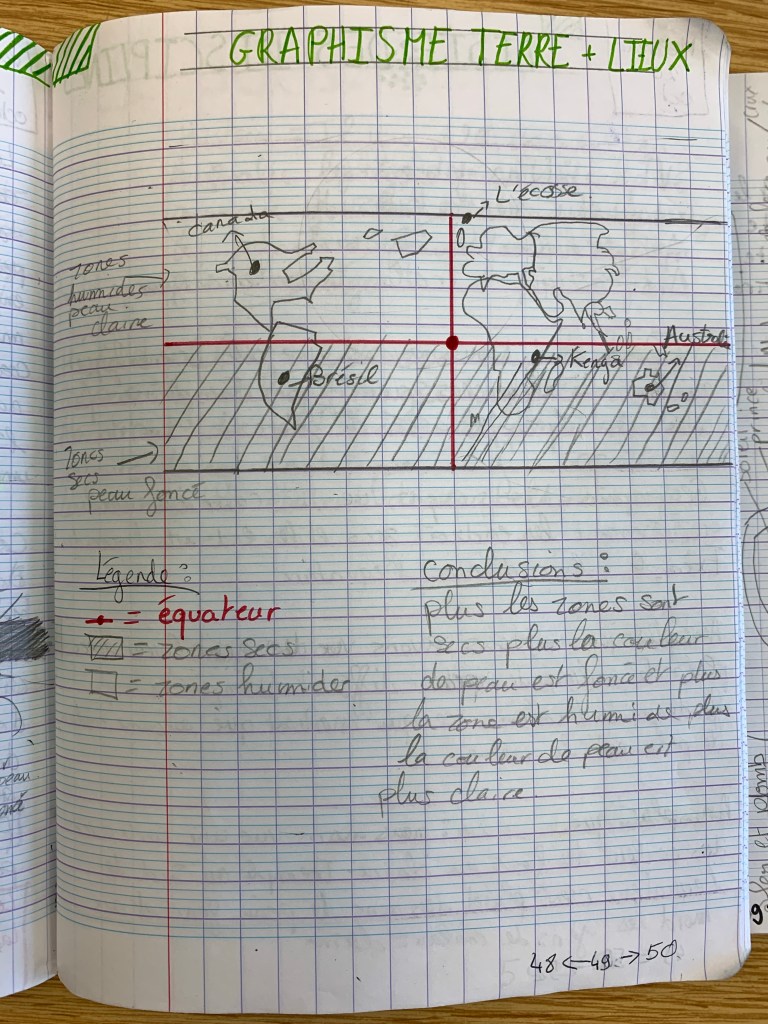 GRAPHISME TERRE + LIEUX
L'écosse
Canada
zones
humides
peau
claire
Australi
Kenya
Brésil
M
zones
secs
peau foncé
Légende :
= équateur
= zones secs
= zones humides
conclusions :
plus les zones sont
secs plus la couleur
de peau est foncé et plus
la zone est humide plus
la couleur de peau est
plus claire.
48 ← 49 → 50